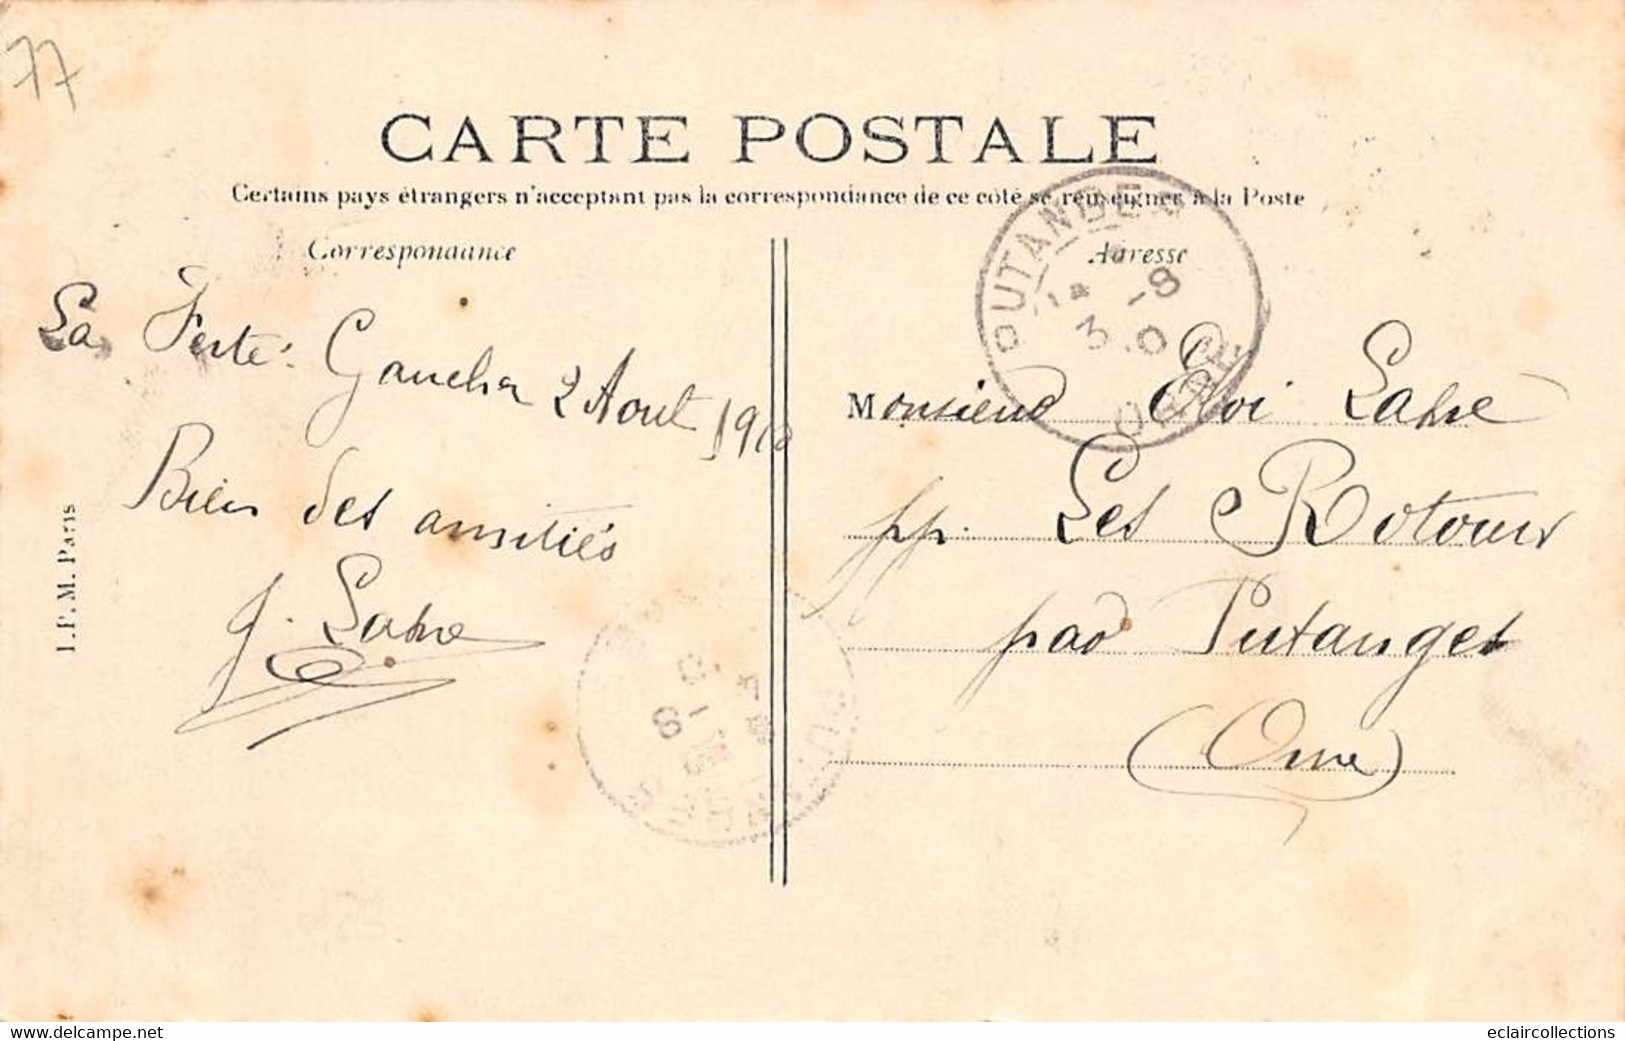 77
CARTE POSTALE
Certains pays étrangers n'acceptent pas la correspondance de ce côté se renseigner à la Poste
Correspondance
Adresse
PUTANGES
14 -8
3 10
ORNE
La Ferté-Gaucher 2 Août 1910
Bien des amitiés
J.
I.P.M. Paris
Monsieur Eloi
pp. Les Rotours
par Putanges
(Orne)
delcampe.net
eclaircollections